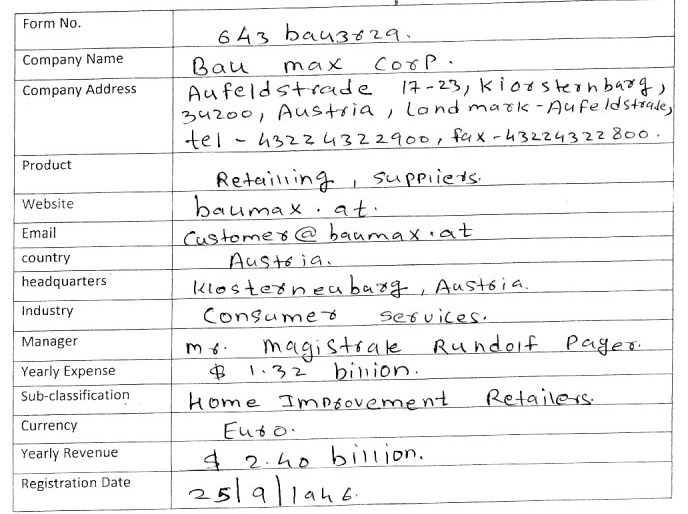 Form No. 643 bau3829.
Company Name Bau max Corp.
Company Address Aufeldstrade 17-23, Kiorsternbarg,
34200, Austria, Land mark - Aufeldstrade,
tel - 43224322900, fax - 43224322800.
Product Retailling, suppliers.
Website baumax.at.
Email Customer@baumax.at
country Austria.
headquarters Klosterneubarg, Austria.
Industry Consumer services.
Manager mr. Magistrale Rundolf Pager.
Yearly Expense $ 1.32 billion.
Sub-classification Home Improvement Retailers.
Currency Euro.
Yearly Revenue $ 2.40 billion.
Registration Date 25/9/1946.